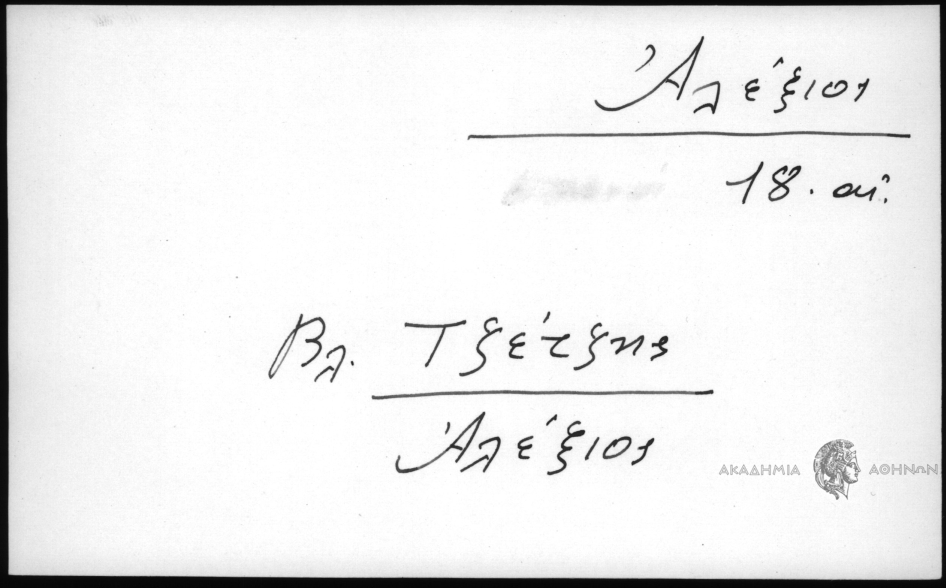 Ἀλέξιος
18. αἰ.
Βλ. Τζέτζης
Ἀλέξιος
ΑΚΑΔΗΜΙΑ ΑΘΗΝΩΝ